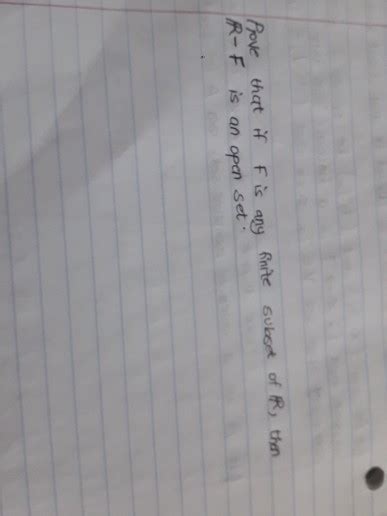 Prove that if F is any finite subset of ℝ, then
ℝ - F is an open set.